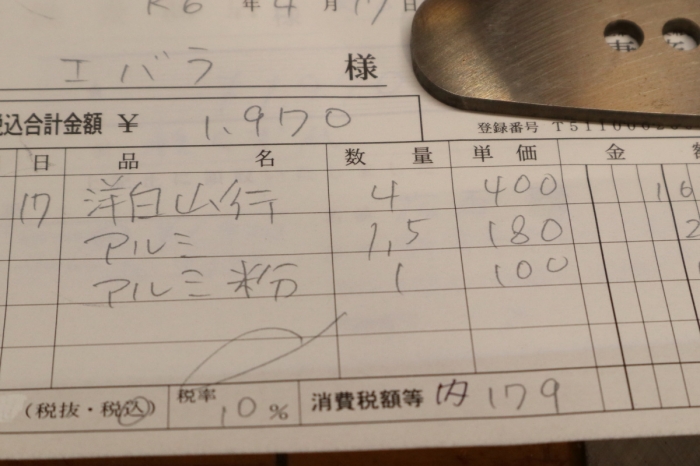 R6年4月17日
エバラ 様
税込合計金額 ¥ 1,970
登録番号 T511000
日 品名 数量 単価 金額
17 洋白山行 4 400 16
アルミ 1,5 180 2
アルミ粉 1 100 1
(税抜・税込) 税率 10% 消費税額等 内 179